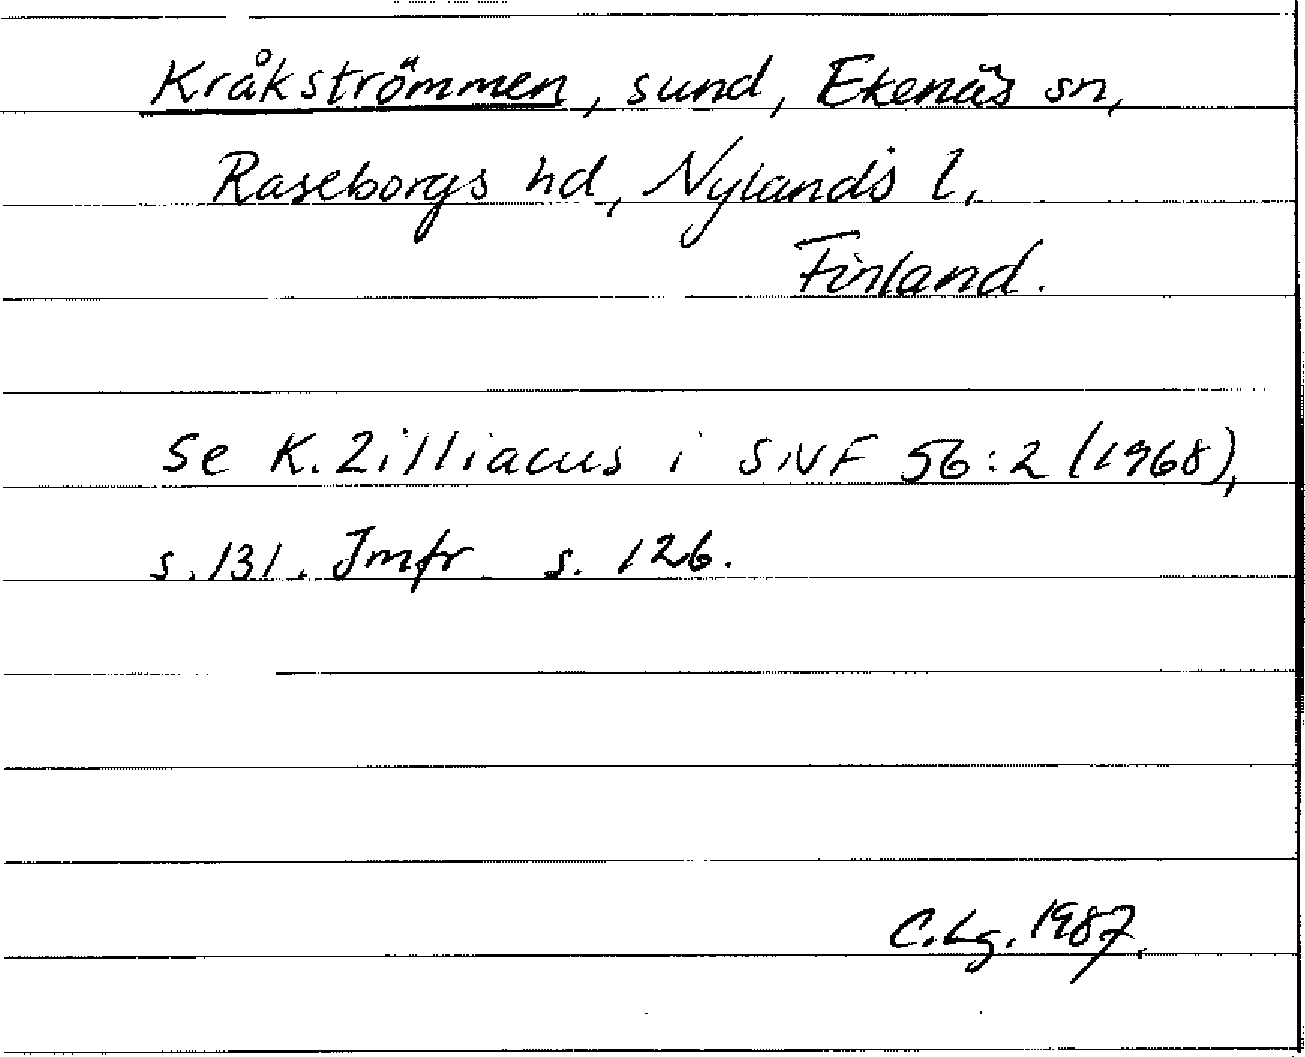 Kråkströmmen, sund, Ekenäs sn,
Raseborgs hd, Nylands l,
Finland.
Se K. Zilliacus i SNF 56:2 (1968),
s. 131. Jmfr s. 126.
C. Lg. 1987.